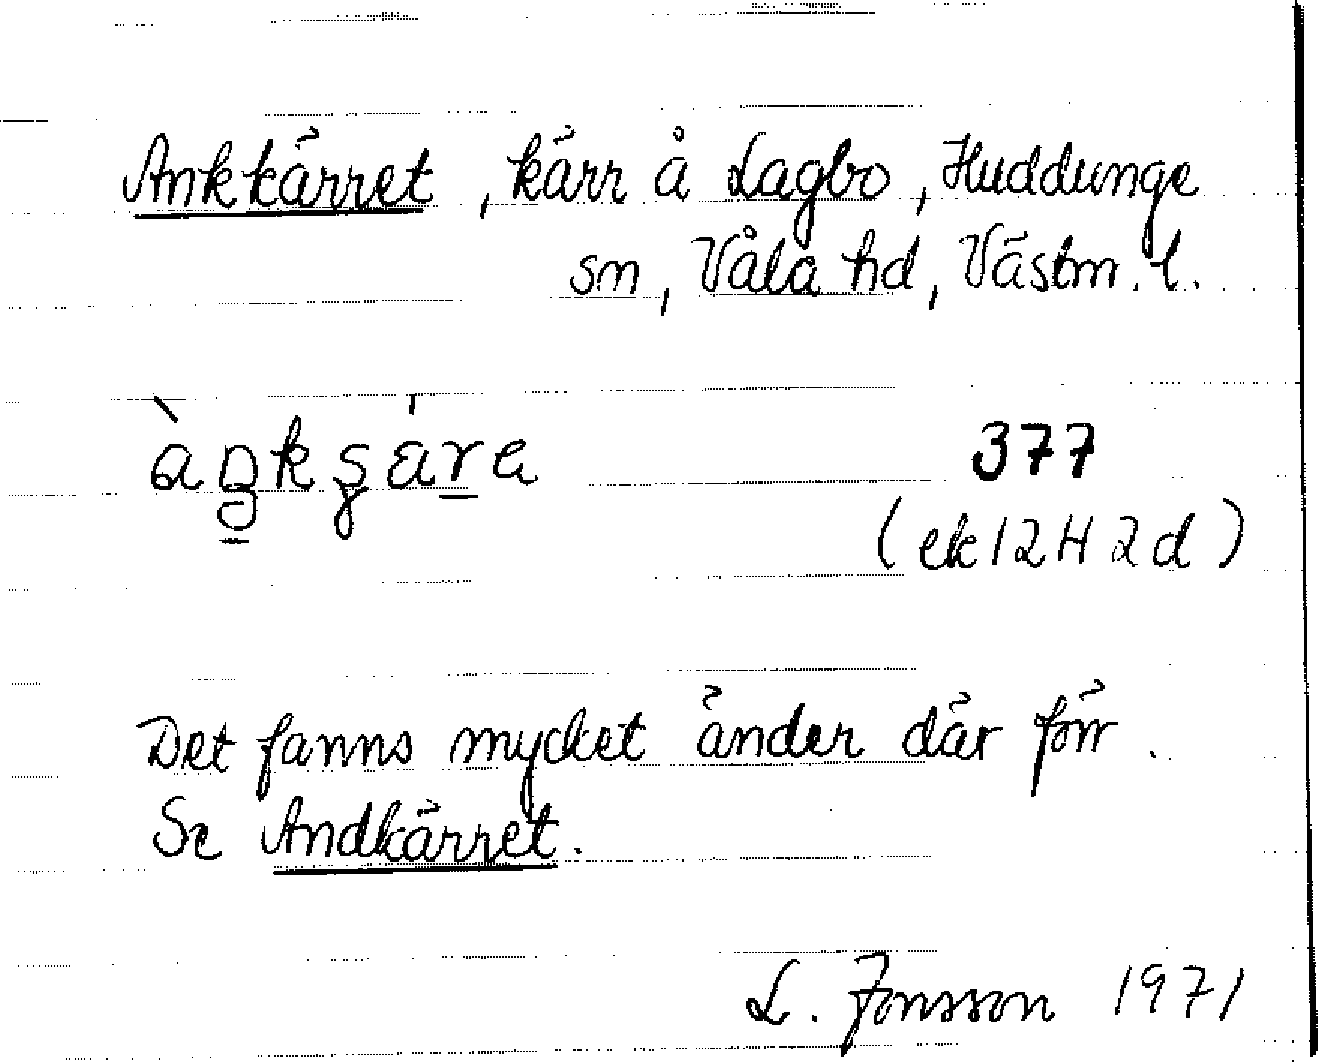 Ankkärret, kärr å Lagbo, Huddunge
sn, Våla hd, Västm. l.
377
(ek 12H2d)
Det fanns mycket änder där förr.
Se Andkärret.
L. Jonsson 1971